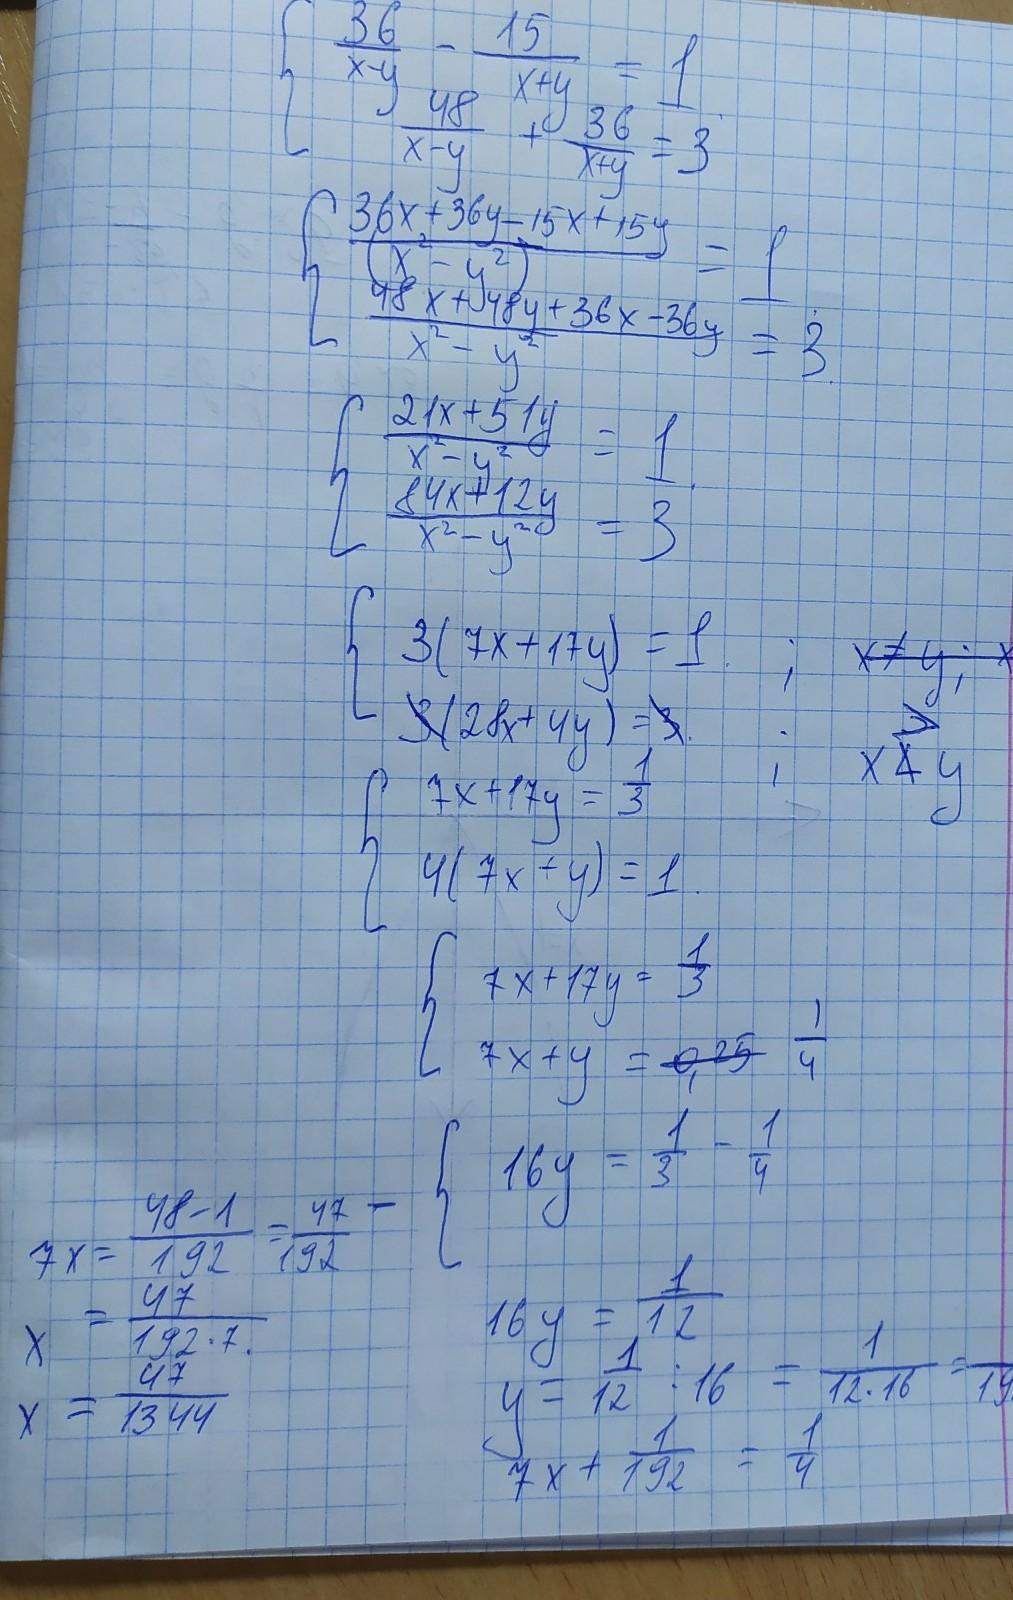 36/(x-y) - 15/(x+y) = 1
48/(x-y) + 36/(x+y) = 3
(36x+36y-15x+15y)/(x²-y²) = 1
(48x+48y+36x-36y)/(x²-y²) = 3
(21x+51y)/(x²-y²) = 1
(84x+12y)/(x²-y²) = 3
3(7x+17y) = 1 ; x≠y; x
3(28x+4y) = 3 ; x > y
7x+17y = 1/3
4(7x+y) = 1
7x+17y = 1/3
7x+y = 0,25 1/4
16y = 1/3 - 1/4
16y = 1/12
y = 1/12 : 16 = 1/(12·16) = /19
7x + 1/192 = 1/4
7x = (48-1)/192 = 47/192
x = 47/(192·7)
x = 47/1344